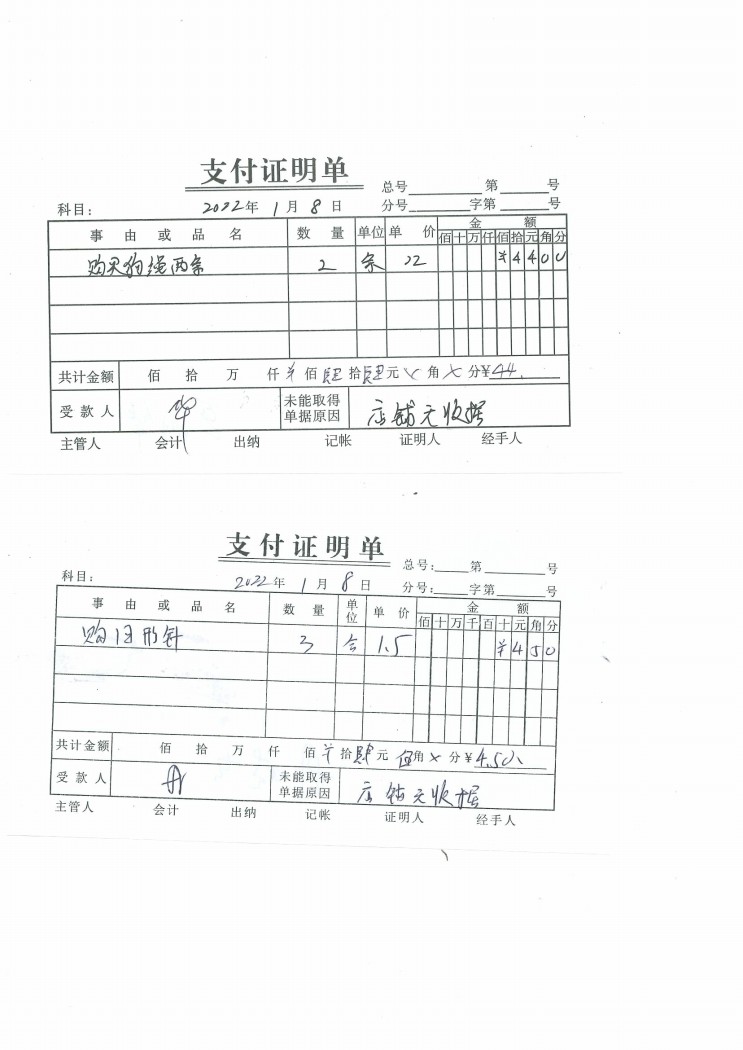 支付证明单
总号 第 号
科目： 2022年 1月 8日 分号 字第 号
事由或品名 数量 单位 单价 金额
佰十万仟佰拾元角分
购买狗绳两条 2 条 22 ¥4400
共计金额 佰 拾 万 仟¥佰肆拾肆元×角×分¥44.
受款人 未能取得单据原因 店铺无收据
主管人 会计 出纳 记帐 证明人 经手人
支付证明单
总号： 第 号
科目： 2022年 1月 8日 分号： 字第 号
事由或品名 数量 单位 单价 金额
佰十万千百十元角分
购回形针 3 合 1.5 ¥450
共计金额 佰 拾 万 仟 佰¥拾肆元伍角×分¥4.50
受款人 未能取得单据原因 店铺无收据
主管人 会计 出纳 记帐 证明人 经手人